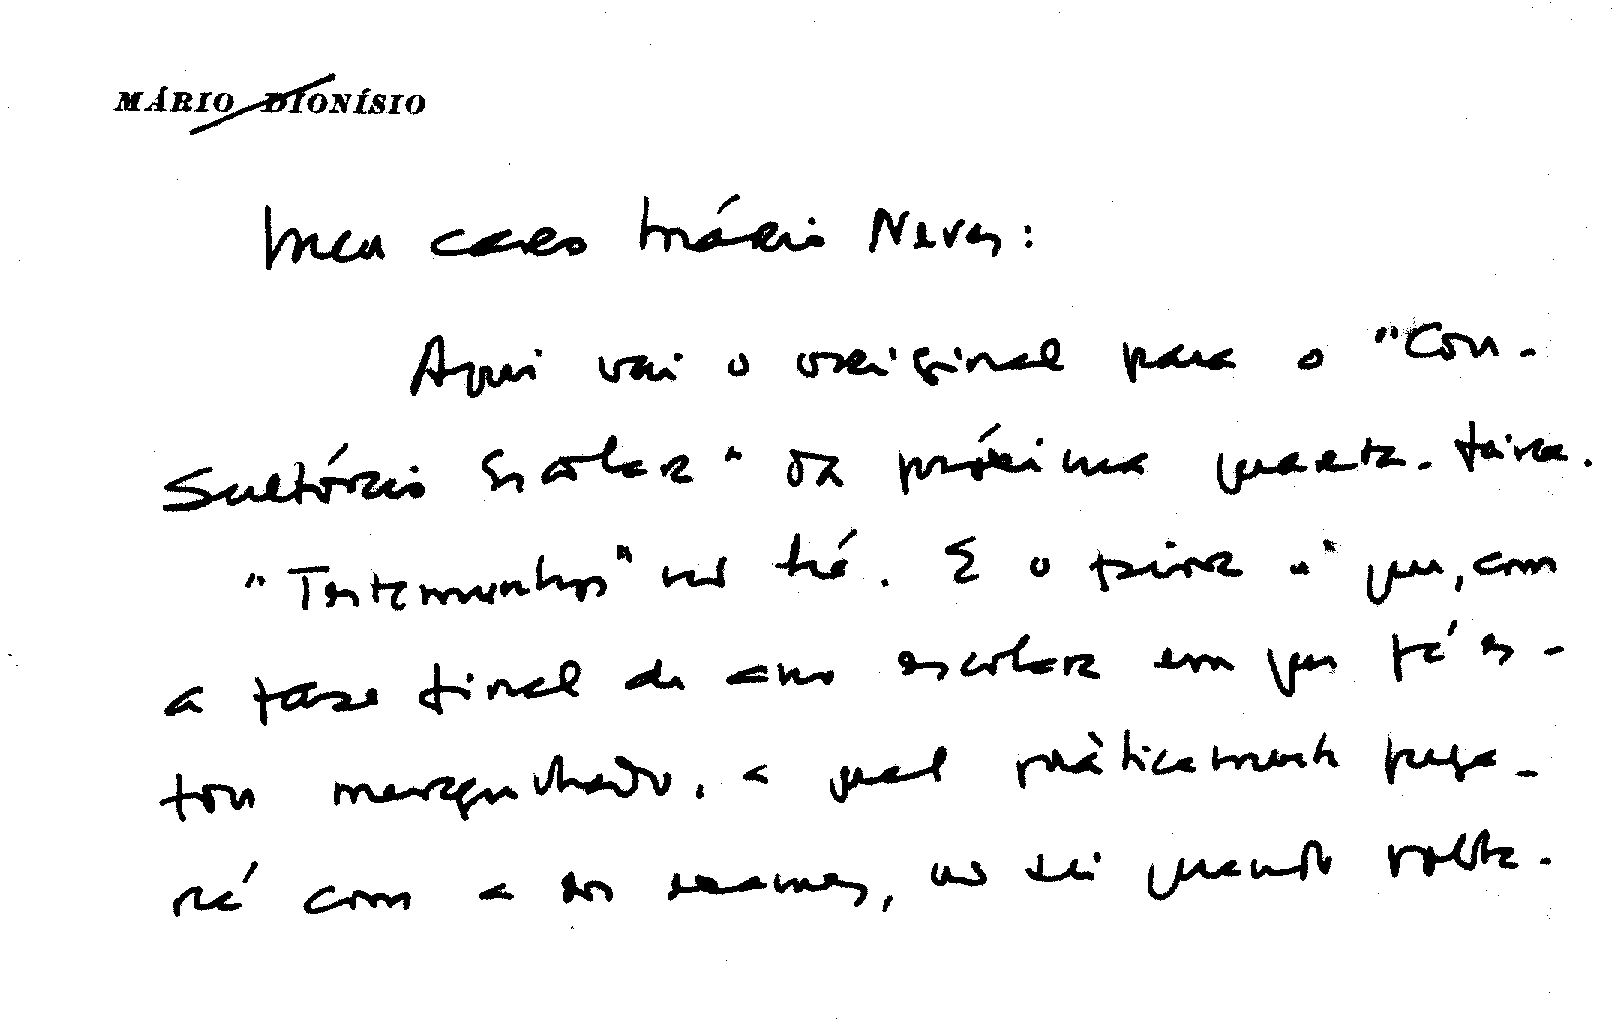 MÁRIO DIONÍSIO
Meu caro Mário Neves:
Aqui vai o original para o "Con-
sultório Escolar" da próxima quarta-feira.
"Testemunhos" não há. E o é que, com
a fase final do ano escolar em que já es-
tou mergulhado, a qual pràticamente pega-
rá com a dos exames, não sei quando volta-